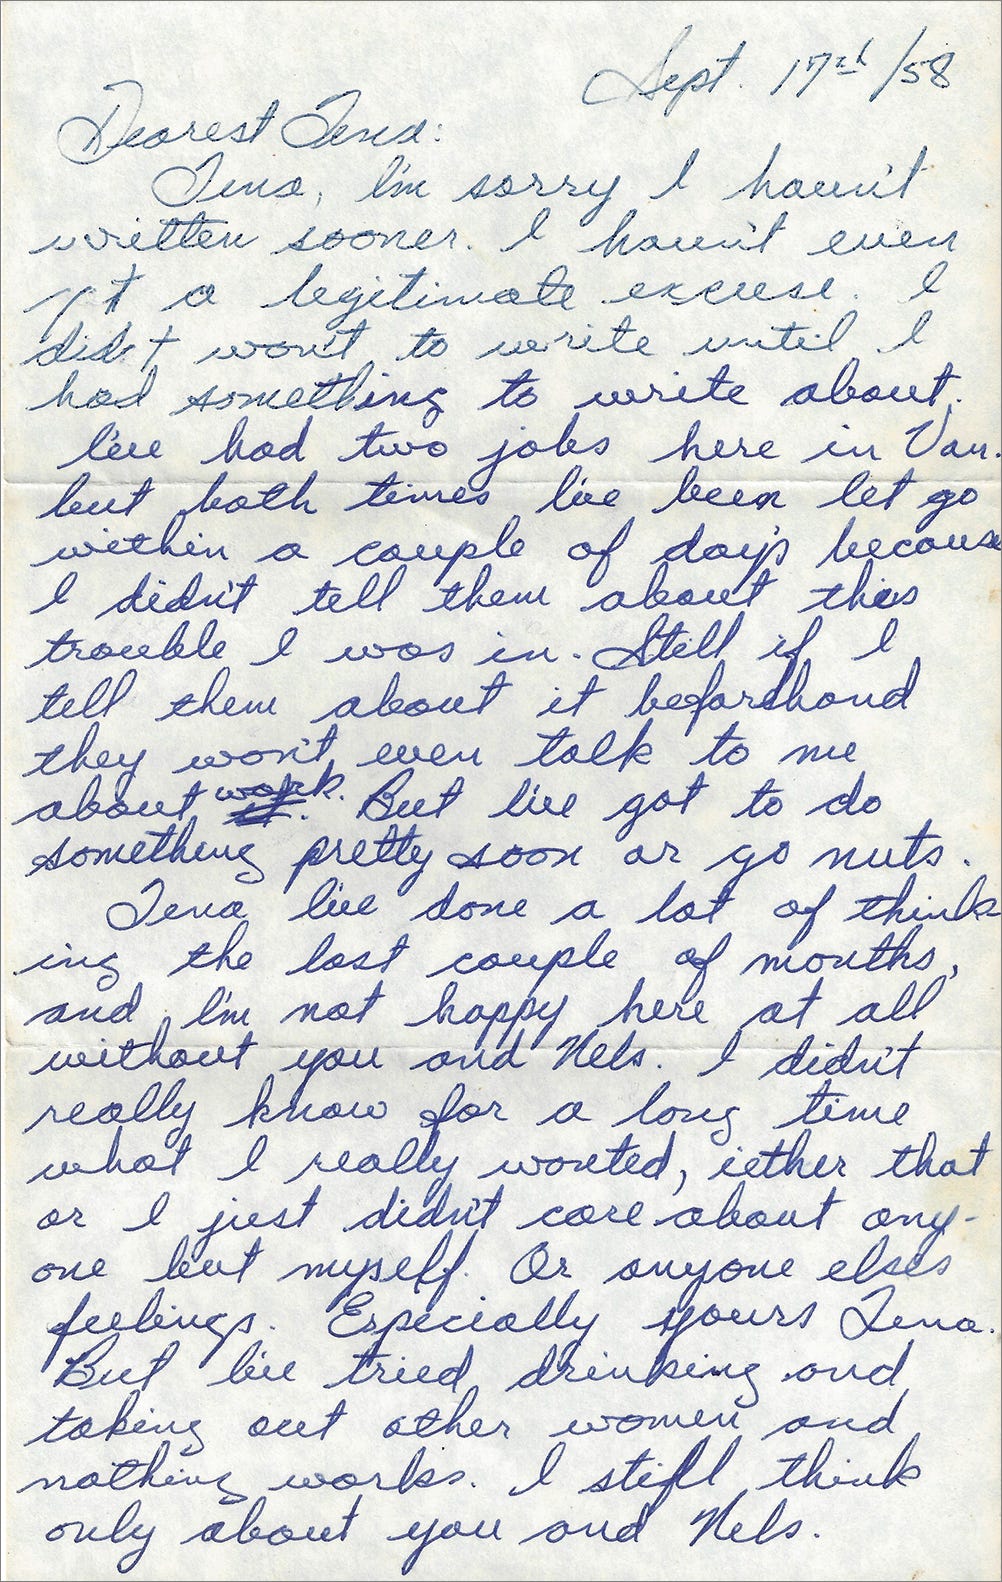 Sept. 17th /58
Dearest Tena:
Tena, I'm sorry I haven't
written sooner. I haven't even
got a legitimate excuse. I
didn't won't to write until I
had something to write about.
I've had two jobs here in Van.
but both times I've been let go
within a couple of day's because
I didn't tell them about this
trouble I was in. Still if I
tell them about it befordhand
they won't even talk to me
about work. But I've got to do
something pretty soon or go nuts.
Tena I've done a lot of think-
ing the last couple of months,
and I'm not happy here at all
without you and Nels. I didn't
really know for a long time
what I really wonted, iether that
or I just didn't care about any-
one but myself. Or anyone elses
feelings. Especially yours Tena.
But I've tried drinking and
taking out other women and
nothing works. I still think
only about you and Nels.